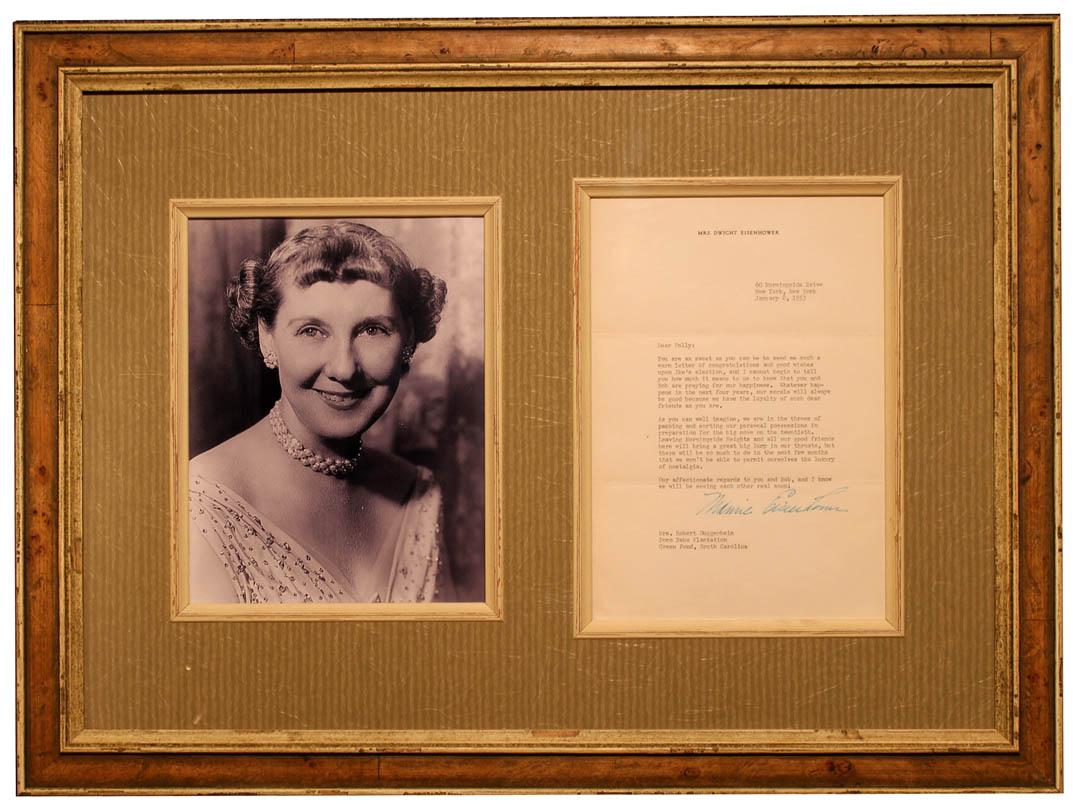 MRS. DWIGHT EISENHOWER
60 Morningside Drive
New York, New York
January 8, 1953
Dear Polly:
You are as sweet as you can be to send me such a
warm letter of congratulations and good wishes
upon Ike's election, and I cannot begin to tell
you how much it means to us to know that you and
Bob are praying for our happiness. Whatever hap-
pens in the next four years, our morale will always
be good because we have the loyalty of such dear
friends as you are.
As you can well imagine, we are in the throes of
packing and sorting our personal possessions in
preparation for the big move on the twentieth.
Leaving Morningside Heights and all our good friends
here will bring a great big lump in our throats, but
there will be so much to do in the next few months
that we won't be able to permit ourselves the luxury
of nostalgia.
Our affectionate regards to you and Bob, and I know
we will be seeing each other real soon!
Mamie Eisenhower
Mrs. Robert Guggenheim
Poco Sabo Plantation
Green Pond, South Carolina